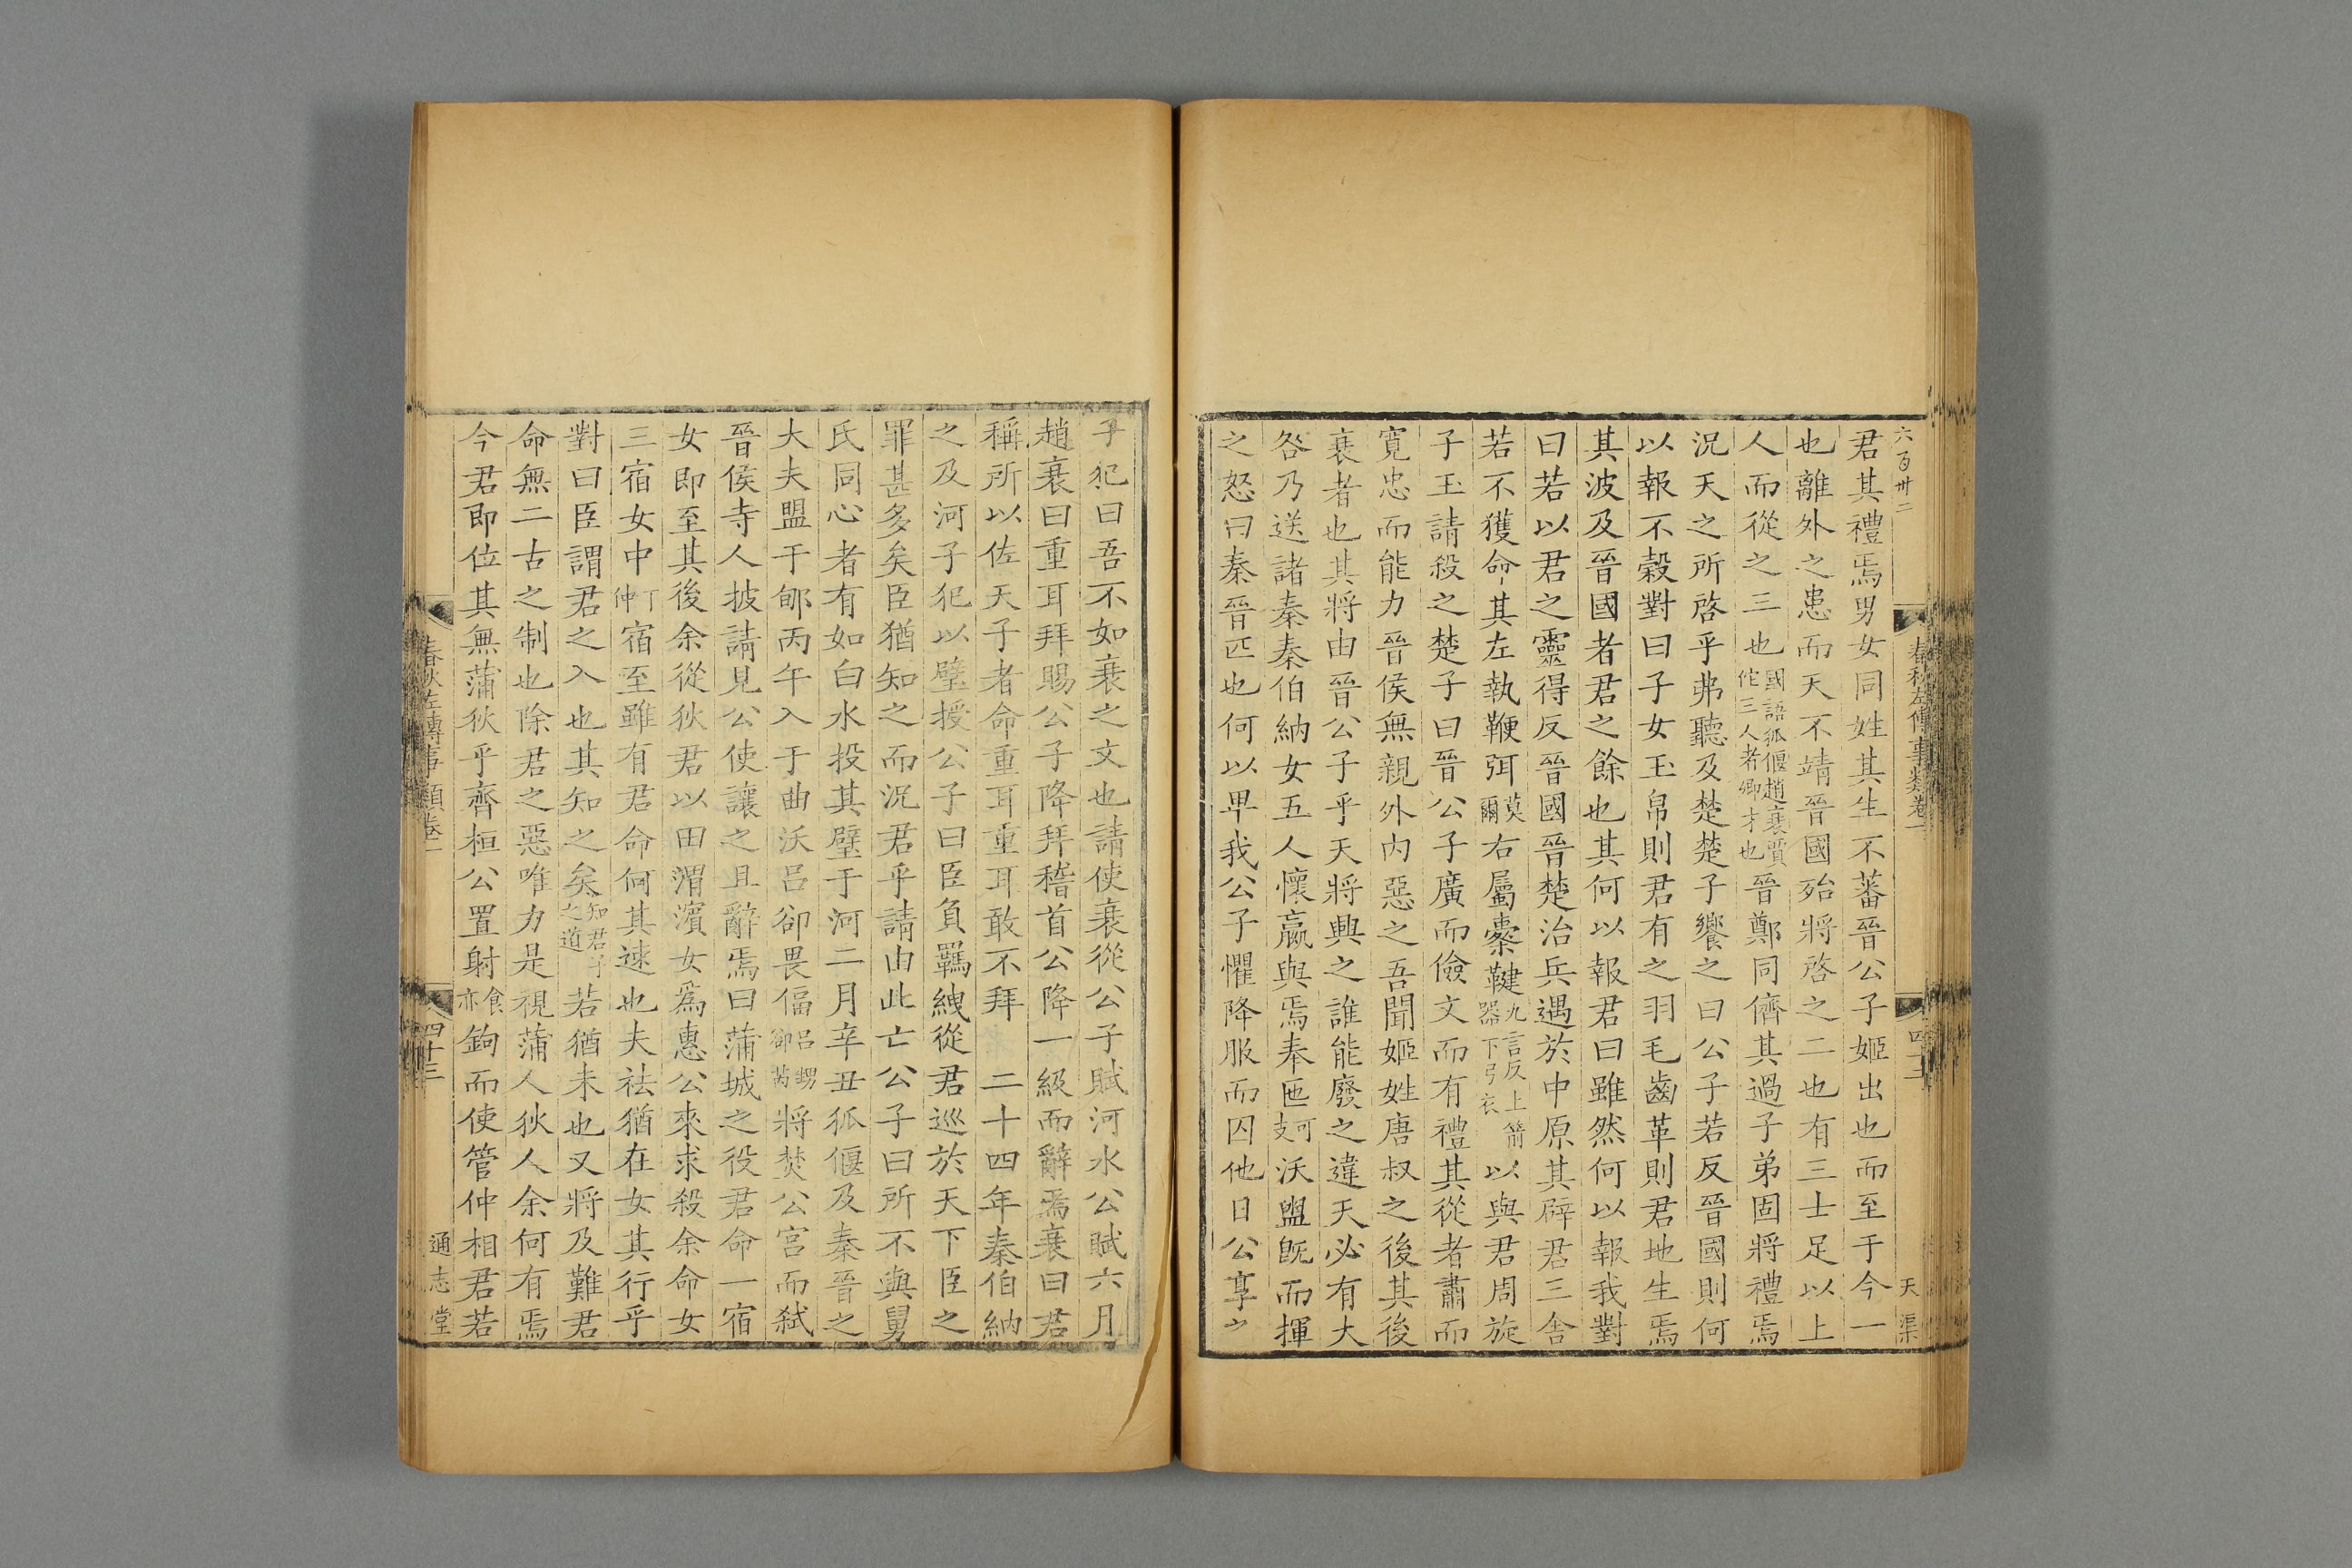 六百卅二
春秋左傳事類卷一
四十二
天渠
君其禮焉男女同姓其生不蕃晉公子姬出也而至于今一
也離外之患而天不靖晉國殆將啓之二也有三士足以上
人而從之三也國語狐偃趙衰賈佗三人者卿才也晉鄭同儕其過子弟固將禮焉
況天之所啓乎弗聽及楚楚子饗之曰公子若反晉國則何
以報不穀對曰子女玉帛則君有之羽毛齒革則君地生焉
其波及晉國者君之餘也其何以報君曰雖然何以報我對
曰若以君之靈得反晉國晉楚治兵遇於中原其辟君三舍
若不獲命其左執鞭弭莫爾右屬櫜鞬九言反上箭器下弓衣以與君周旋
子玉請殺之楚子曰晉公子廣而儉文而有禮其從者肅而
寬忠而能力晉侯無親外內惡之吾聞姬姓唐叔之後其後
衰者也其將由晉公子乎天將興之誰能廢之違天必有大
咎乃送諸秦秦伯納女五人懷嬴與焉奉匜支可沃盥旣而揮
之怒曰秦晉匹也何以卑我公子懼降服而囚他日公享之
子犯曰吾不如衰之文也請使衰從公子賦河水公賦六月
趙衰曰重耳拜賜公子降拜稽首公降一級而辭焉衰曰君
稱所以佐天子者命重耳重耳敢不拜 二十四年秦伯納
之及河子犯以璧授公子曰臣負羈絏從君巡於天下臣之
罪甚多矣臣猶知之而況君乎請由此亡公子曰所不與舅
氏同心者有如白水投其璧于河二月辛丑狐偃及秦晉之
大夫盟于郇丙午入于曲沃呂卻畏偪呂甥卻芮將焚公宮而弒
晉侯寺人披請見公使讓之且辭焉曰蒲城之役君命一宿
女即至其後余從狄君以田渭濱女爲惠公來求殺余命女
三宿女中丁仲宿至雖有君命何其速也夫祛猶在女其行乎
對曰臣謂君之入也其知之矣知君子之道若猶未也又將及難君
命無二古之制也除君之惡唯力是視蒲人狄人余何有焉
今君即位其無蒲狄乎齊桓公置射食亦鉤而使管仲相君若
春秋左傳事類卷一
四十三
通志堂